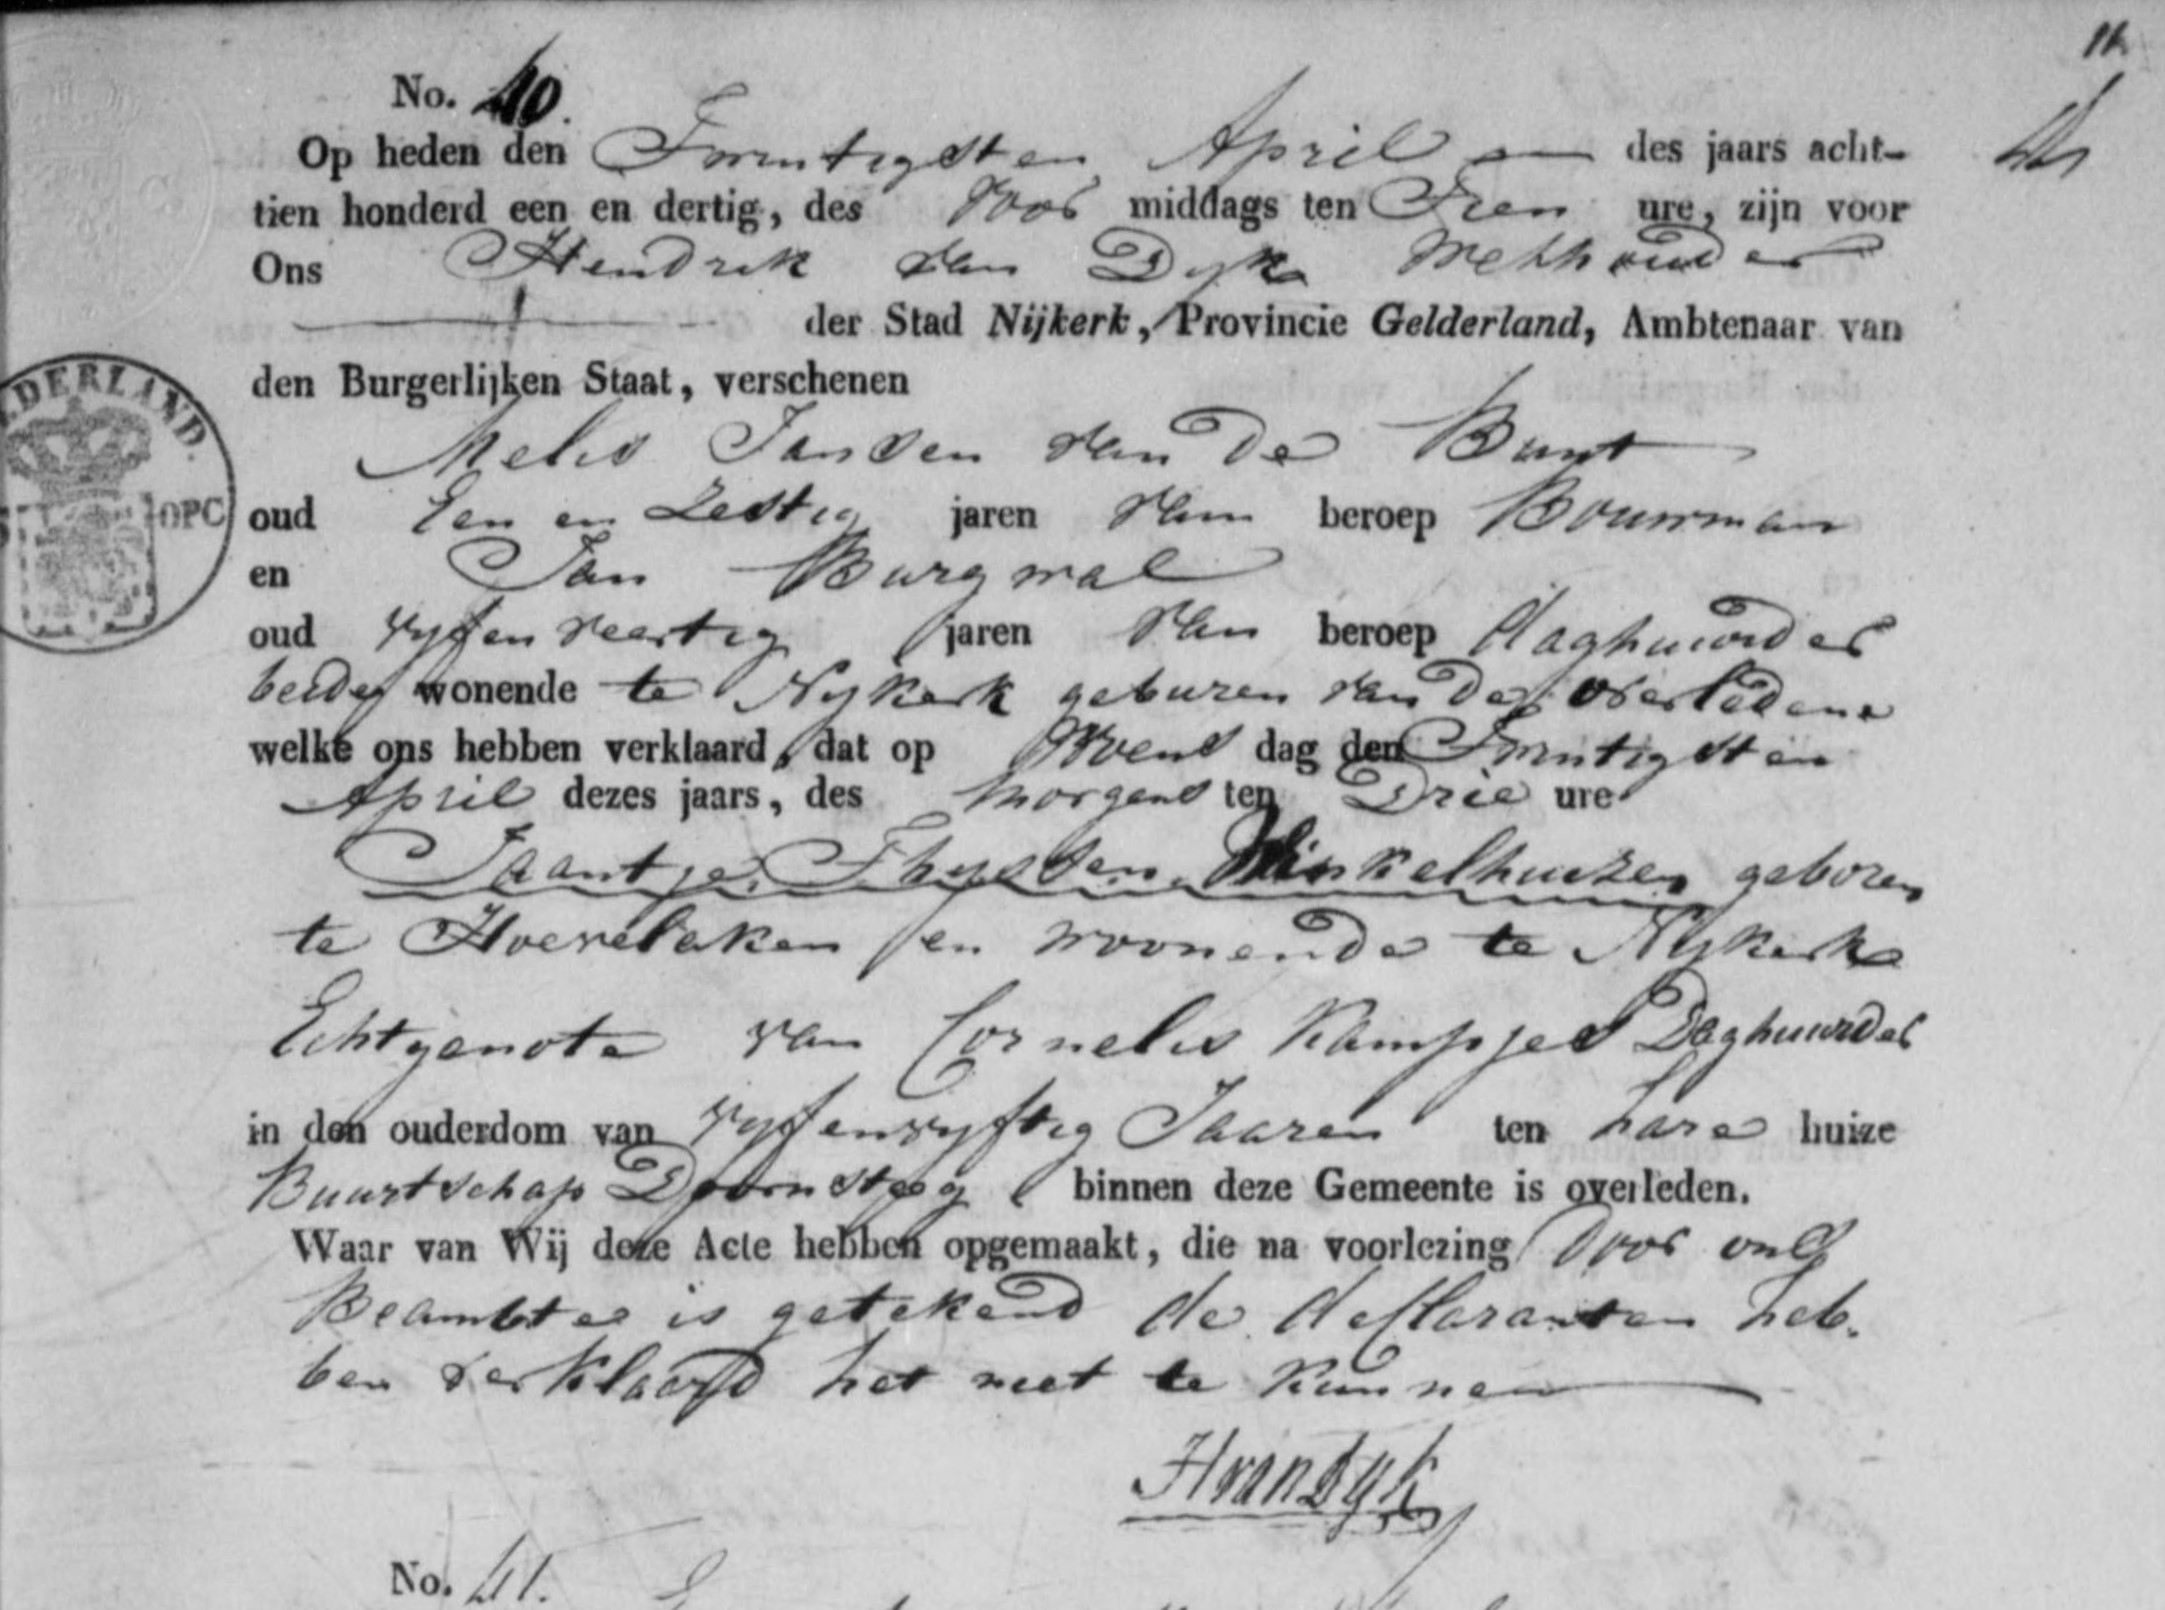 No. 40.
Op heden den Twintigsten April des jaars acht-
tien honderd een en dertig, des voor middags ten Tien ure, zijn voor
Ons Hendrik van Dyk Wethouder
der Stad Nijkerk, Provincie Gelderland, Ambtenaar van
den Burgerlijken Staat, verschenen
Melis Jansen van de Bunt
oud Een en Zestig jaren van beroep Bouwman
en Jan Burgwal
oud vyfen veertig jaren van beroep daghuurder
beide wonende te Nykerk geburen van de overledene
welke ons hebben verklaard, dat op Woens dag den Twintigsten
April dezes jaars, des morgens ten Drie ure
Jaantje Thyssen Winkelhuizen geboren
te Hoevelaken en woonende te Nykerk
Echtgenote van Cornelis Kampjes Daghuurder
in den ouderdom van vyfenvyftig Jaaren ten hare huize
Buurtschap Doornsteeg binnen deze Gemeente is overleden.
Waar van Wij deze Acte hebben opgemaakt, die na voorlezing door ons
Beambte is getekend de declaranten heb-
ben verklaard het niet te kunnen
HvanDyk
No. 41.
NEDERLAND.
OPC